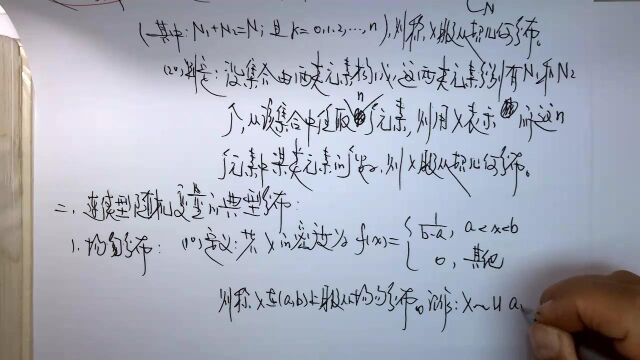 N
(其中: N₁+N₂=N; 且 k=0,1,2,…,n), 则称 X 服从超几何分布。
(2°) 判定: 设集合由两类元素构成, 这两类元素分别有 N₁ 和 N₂
个, 从该集合中任取 n 个元素, 则用 X 表示 所这 n
个元素中某类元素的个数, 则 X 服从超几何分布。
二、连续型随机变量的典型分布:
1. 均匀分布: (1°) 定义: 若 X 的密度为 f(x)= { 1/(b-a), a<x<b
0, 其他
则称 X 在(a,b)上服从均匀分布。记作: X~U a,